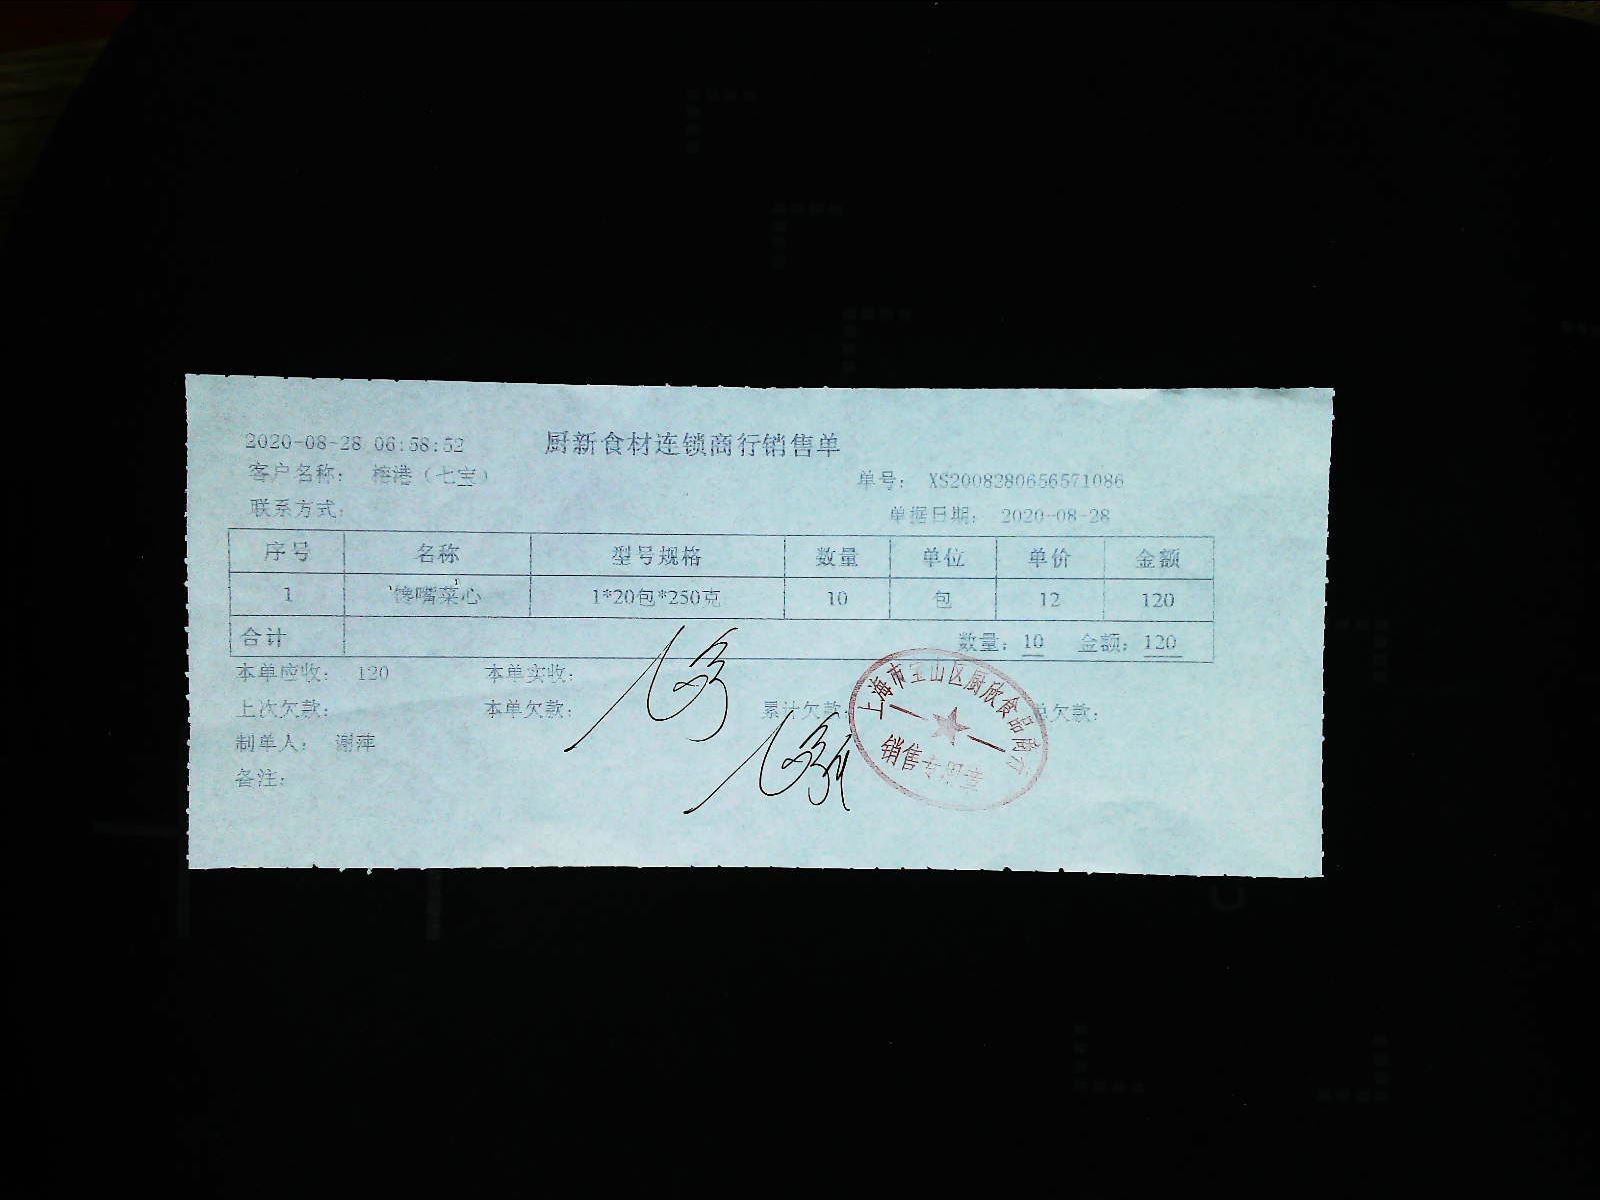 2020-08-28 06:58:52 厨新食材连锁商行销售单
客户名称: 榕港（七宝） 单号: XS2008280656571086
联系方式: 单据日期: 2020-08-28
序号 名称 型号规格 数量 单位 单价 金额
1 馋嘴菜心 1*20包*250克 10 包 12 120
合计 数量: 10 金额: 120
本单应收: 120 本单实收:
上次欠款: 本单欠款: 累计欠款: 欠款:
制单人: 谢萍
备注:
上海市宝山区厨欣食品商行
销售专用章